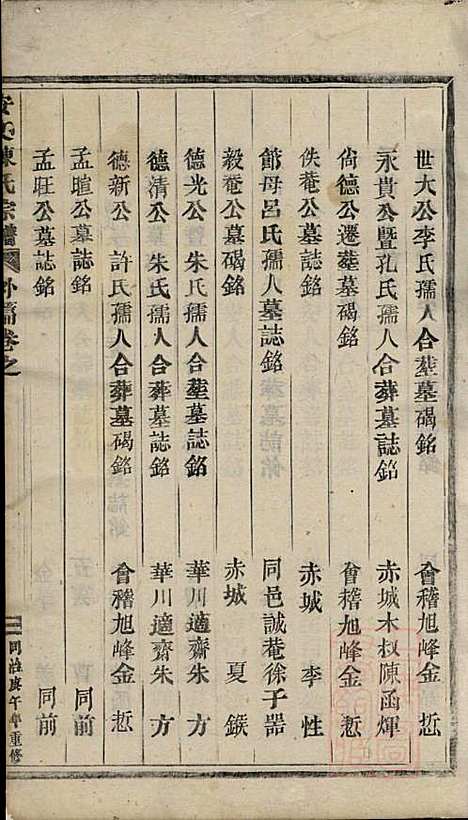 世大公李氏孺人合塟墓碣銘　會稽旭峰金悊
永貴公暨孔氏孺人合葬墓誌銘　赤城木叔陳函煇
尙德公遷塟墓碣銘　會稽旭峰金悊
佚菴公墓誌銘　赤城李性
節母呂氏孺人墓誌銘　同邑誠菴徐子器
毅菴公墓碣銘　赤城夏鍭
德光公暨朱氏孺人合塟墓誌銘　華川適齋朱方
德清公朱氏孺人合葬墓誌銘　華川適齋朱方
德新公許氏孺人合葬墓碣銘　會稽旭峰金悊
孟暄公墓誌銘　同前
孟旺公墓誌銘　同前
陳氏宗譜　外篇卷之　二　同治庚午年重修